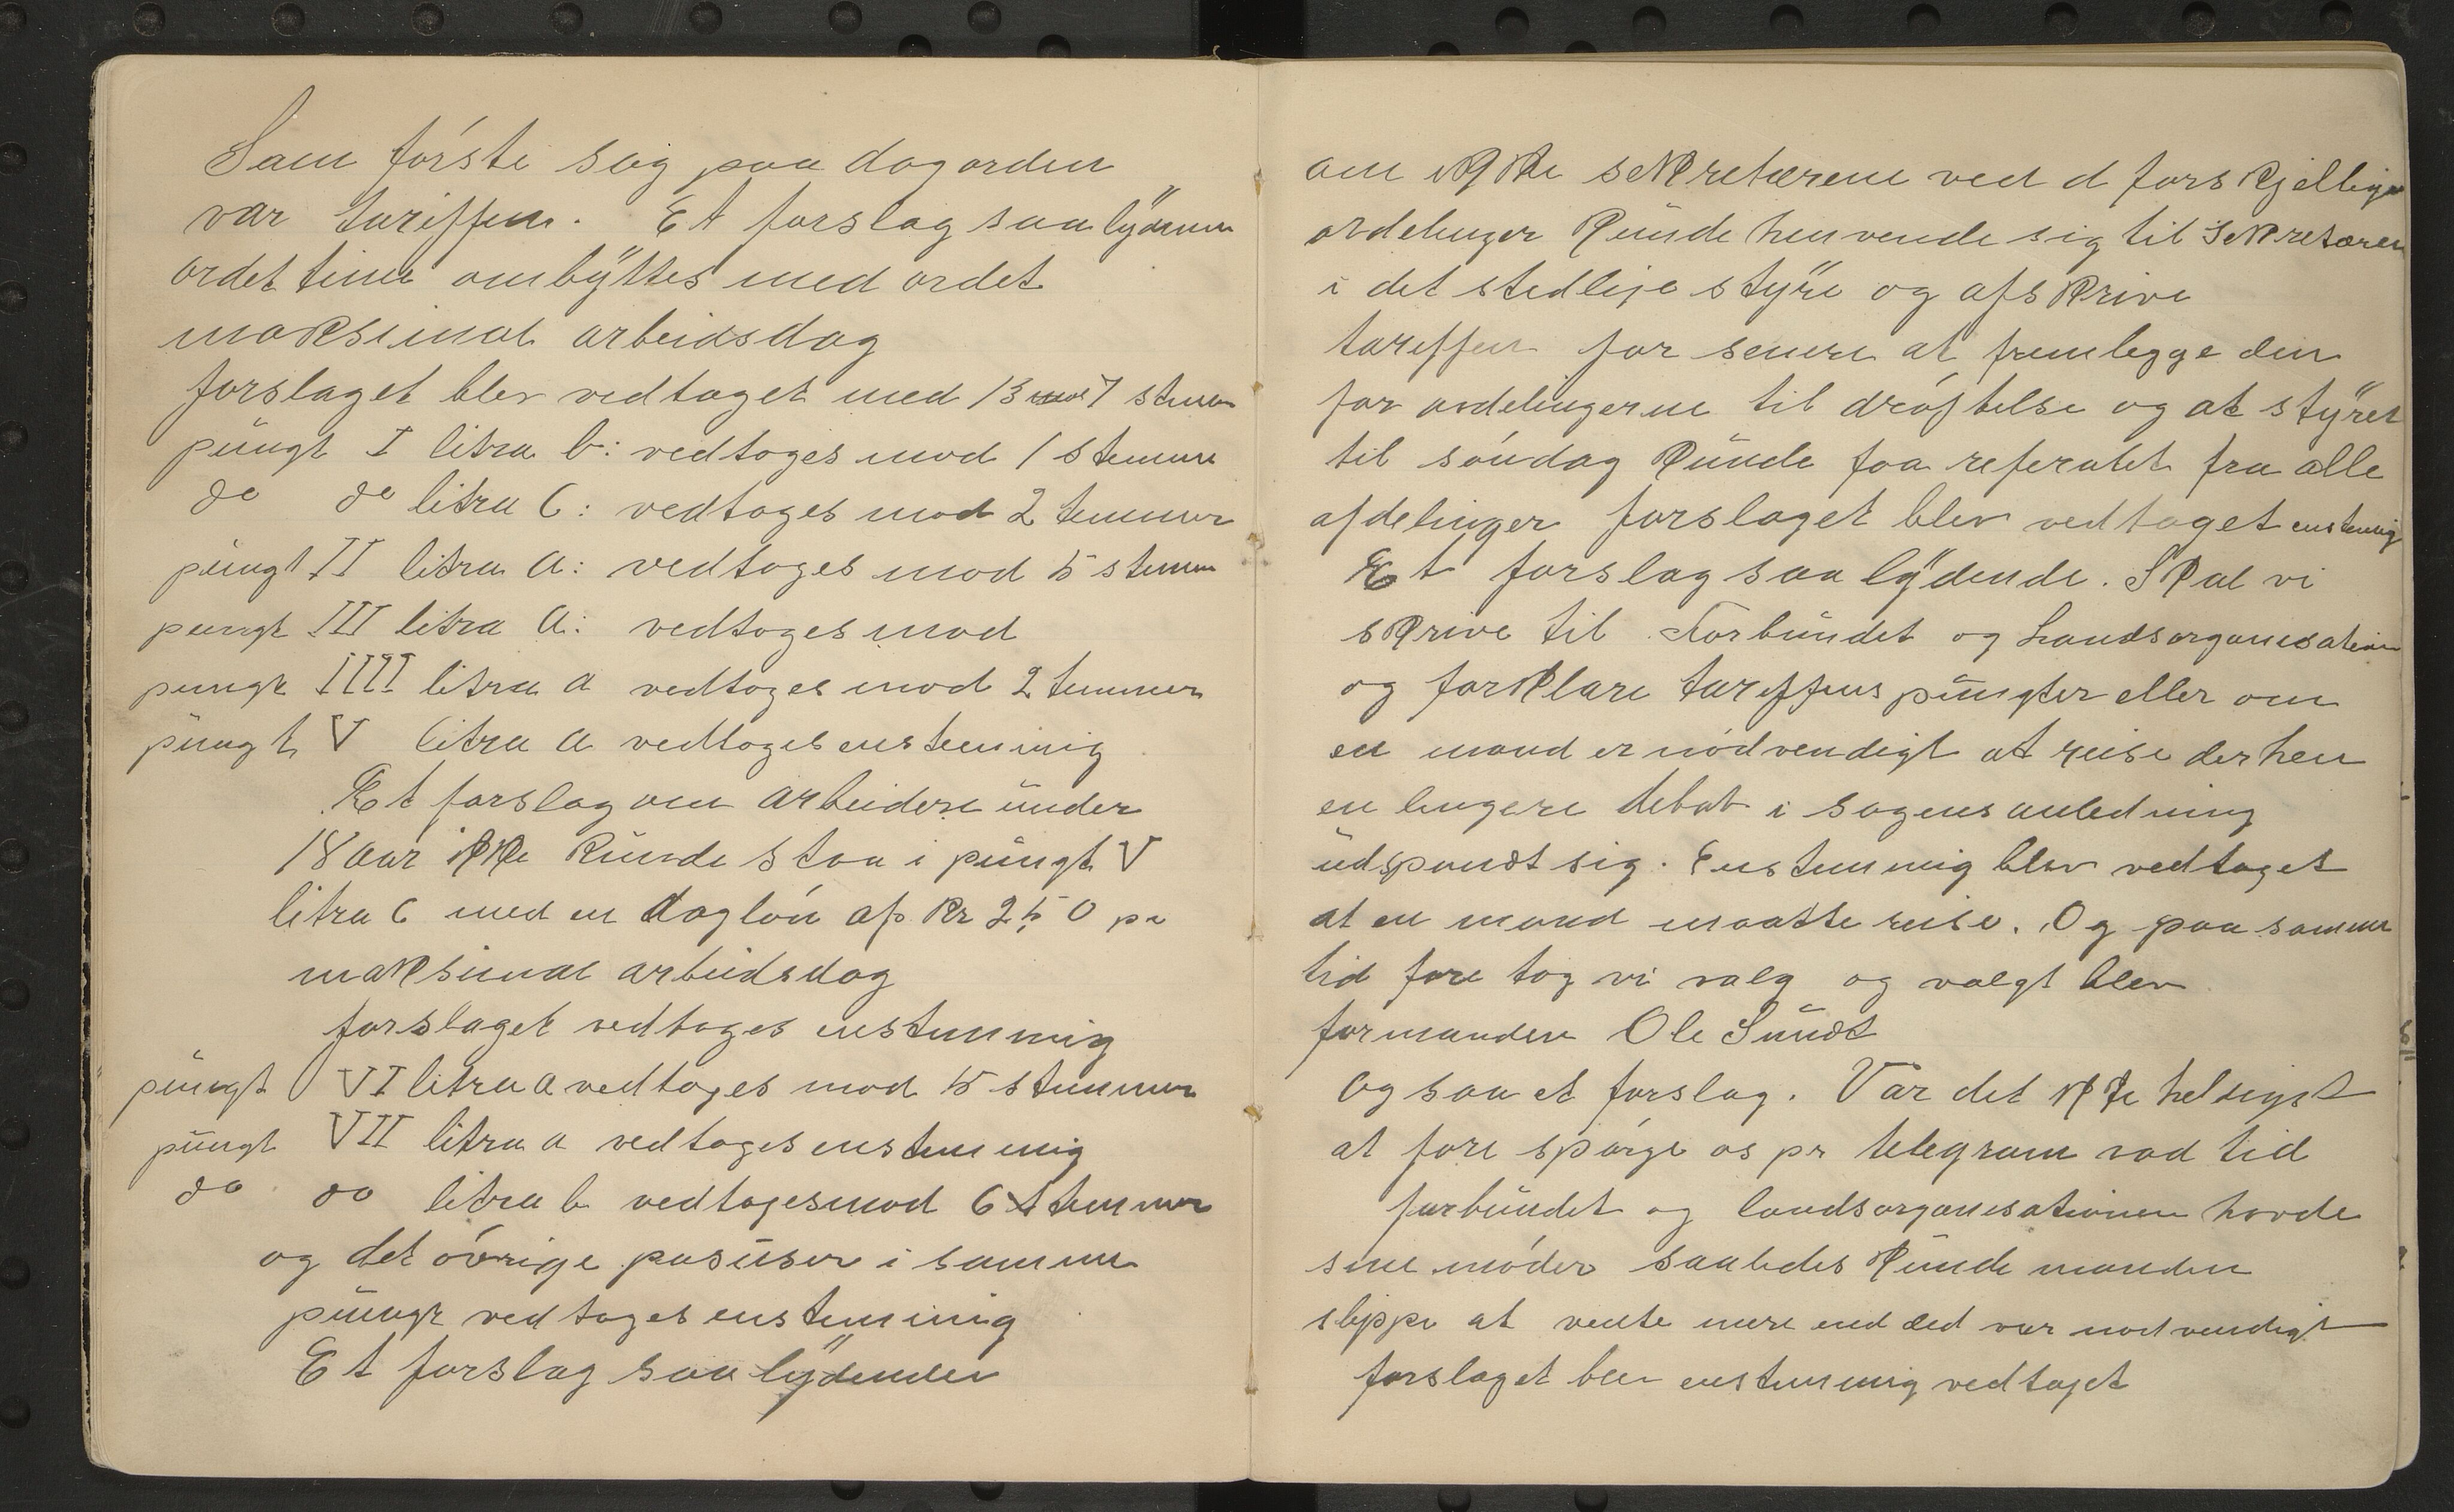 Som förste sag paa dagorden
var tariffen. Et forslag saa lÿdenne
ordet time ombÿttes med ordet
maksimal arbeidsdag
forslaget blev vedtaget med 13 mod 7 stemer
püngt I litra b: vedtoges mod 1 stemme
do do litra C: vedtoges mod 2 temmer
püngt II litra a: vedtoges mod 5 stemm
pungt III litra a: vedtoges mod
pungt IIII litra a vedtoges mod 2 temmer
püngt V litra a vedtoges enstemmig
Et forslag om arbeidere ünder
18 aar ikke künde staa i püngt V
litra C med en daglön af Kr 2,50 pr
maksimal arbeidsdag
forslaget vedtoges enstemmig
püngt VI litra a vedtoges mod 5 stemmer
püngt VII litra a vedtoges enstemmig
do do litra b vedtoges mod 6 stemmer
og det övrige posüser i samme
püngt vedtoges enstemmig
Et forslag saa lÿdender
om ikke sekretærene ved d forskjellige
avdelinger künde henvende sig til Sekretæren
i det stedlige stÿre og afskrive
tariffen for senere at fremlegge den
for avdelingerne til dröftelse og at stÿret
til söndag künde faa referatet fra alle
afdelinger forslaget blev vedtaget enstemig
Et forslag saa lÿdende. Skal vi
skrive til Forbündet og Landsorganisation
og forklare tariffens püngter eller om
en mand er nödvendigt at reise derhen
en lengere debat i sagens anledning
üdspandt sig. Enstemmig blev vedtaget
at en mand maatte reise. Og paa samme
tid fore tog vi valg og valgt blev
formanden Ole Sündt
Og saa et forslag. Var det ikke heldigst
at fore spörge os pr telegram vad tid
forbündet og landsorganisationen havde
sine möder saaledes künde manden
slippe at vente mere end ded var nodvendigt
forslaget blev enstemmig vedtaget